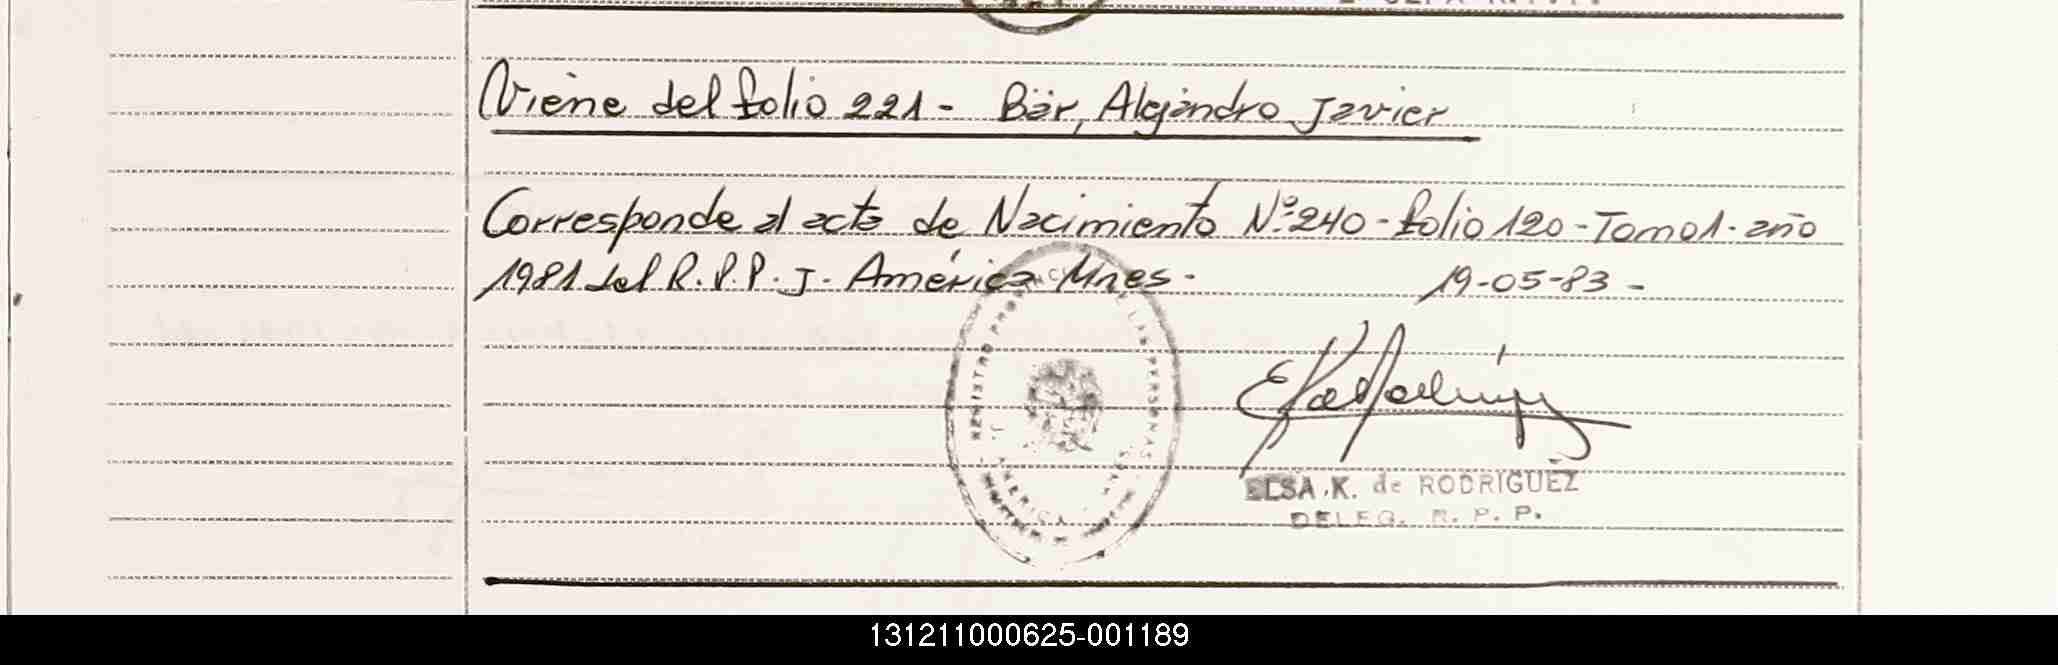 Viene del folio 221 - Bär, Alejandro Javier
Corresponde al acta de Nacimiento Nº 240 - folio 120 - Tomo 1 - año
1981 del R. P. P. J. América Mnes. 19-05-83 -
REGISTRO LAS PERSONAS
J. AMERICA
ELSA K. de RODRIGUEZ
DELEG. R. P. P.
131211000625-001189